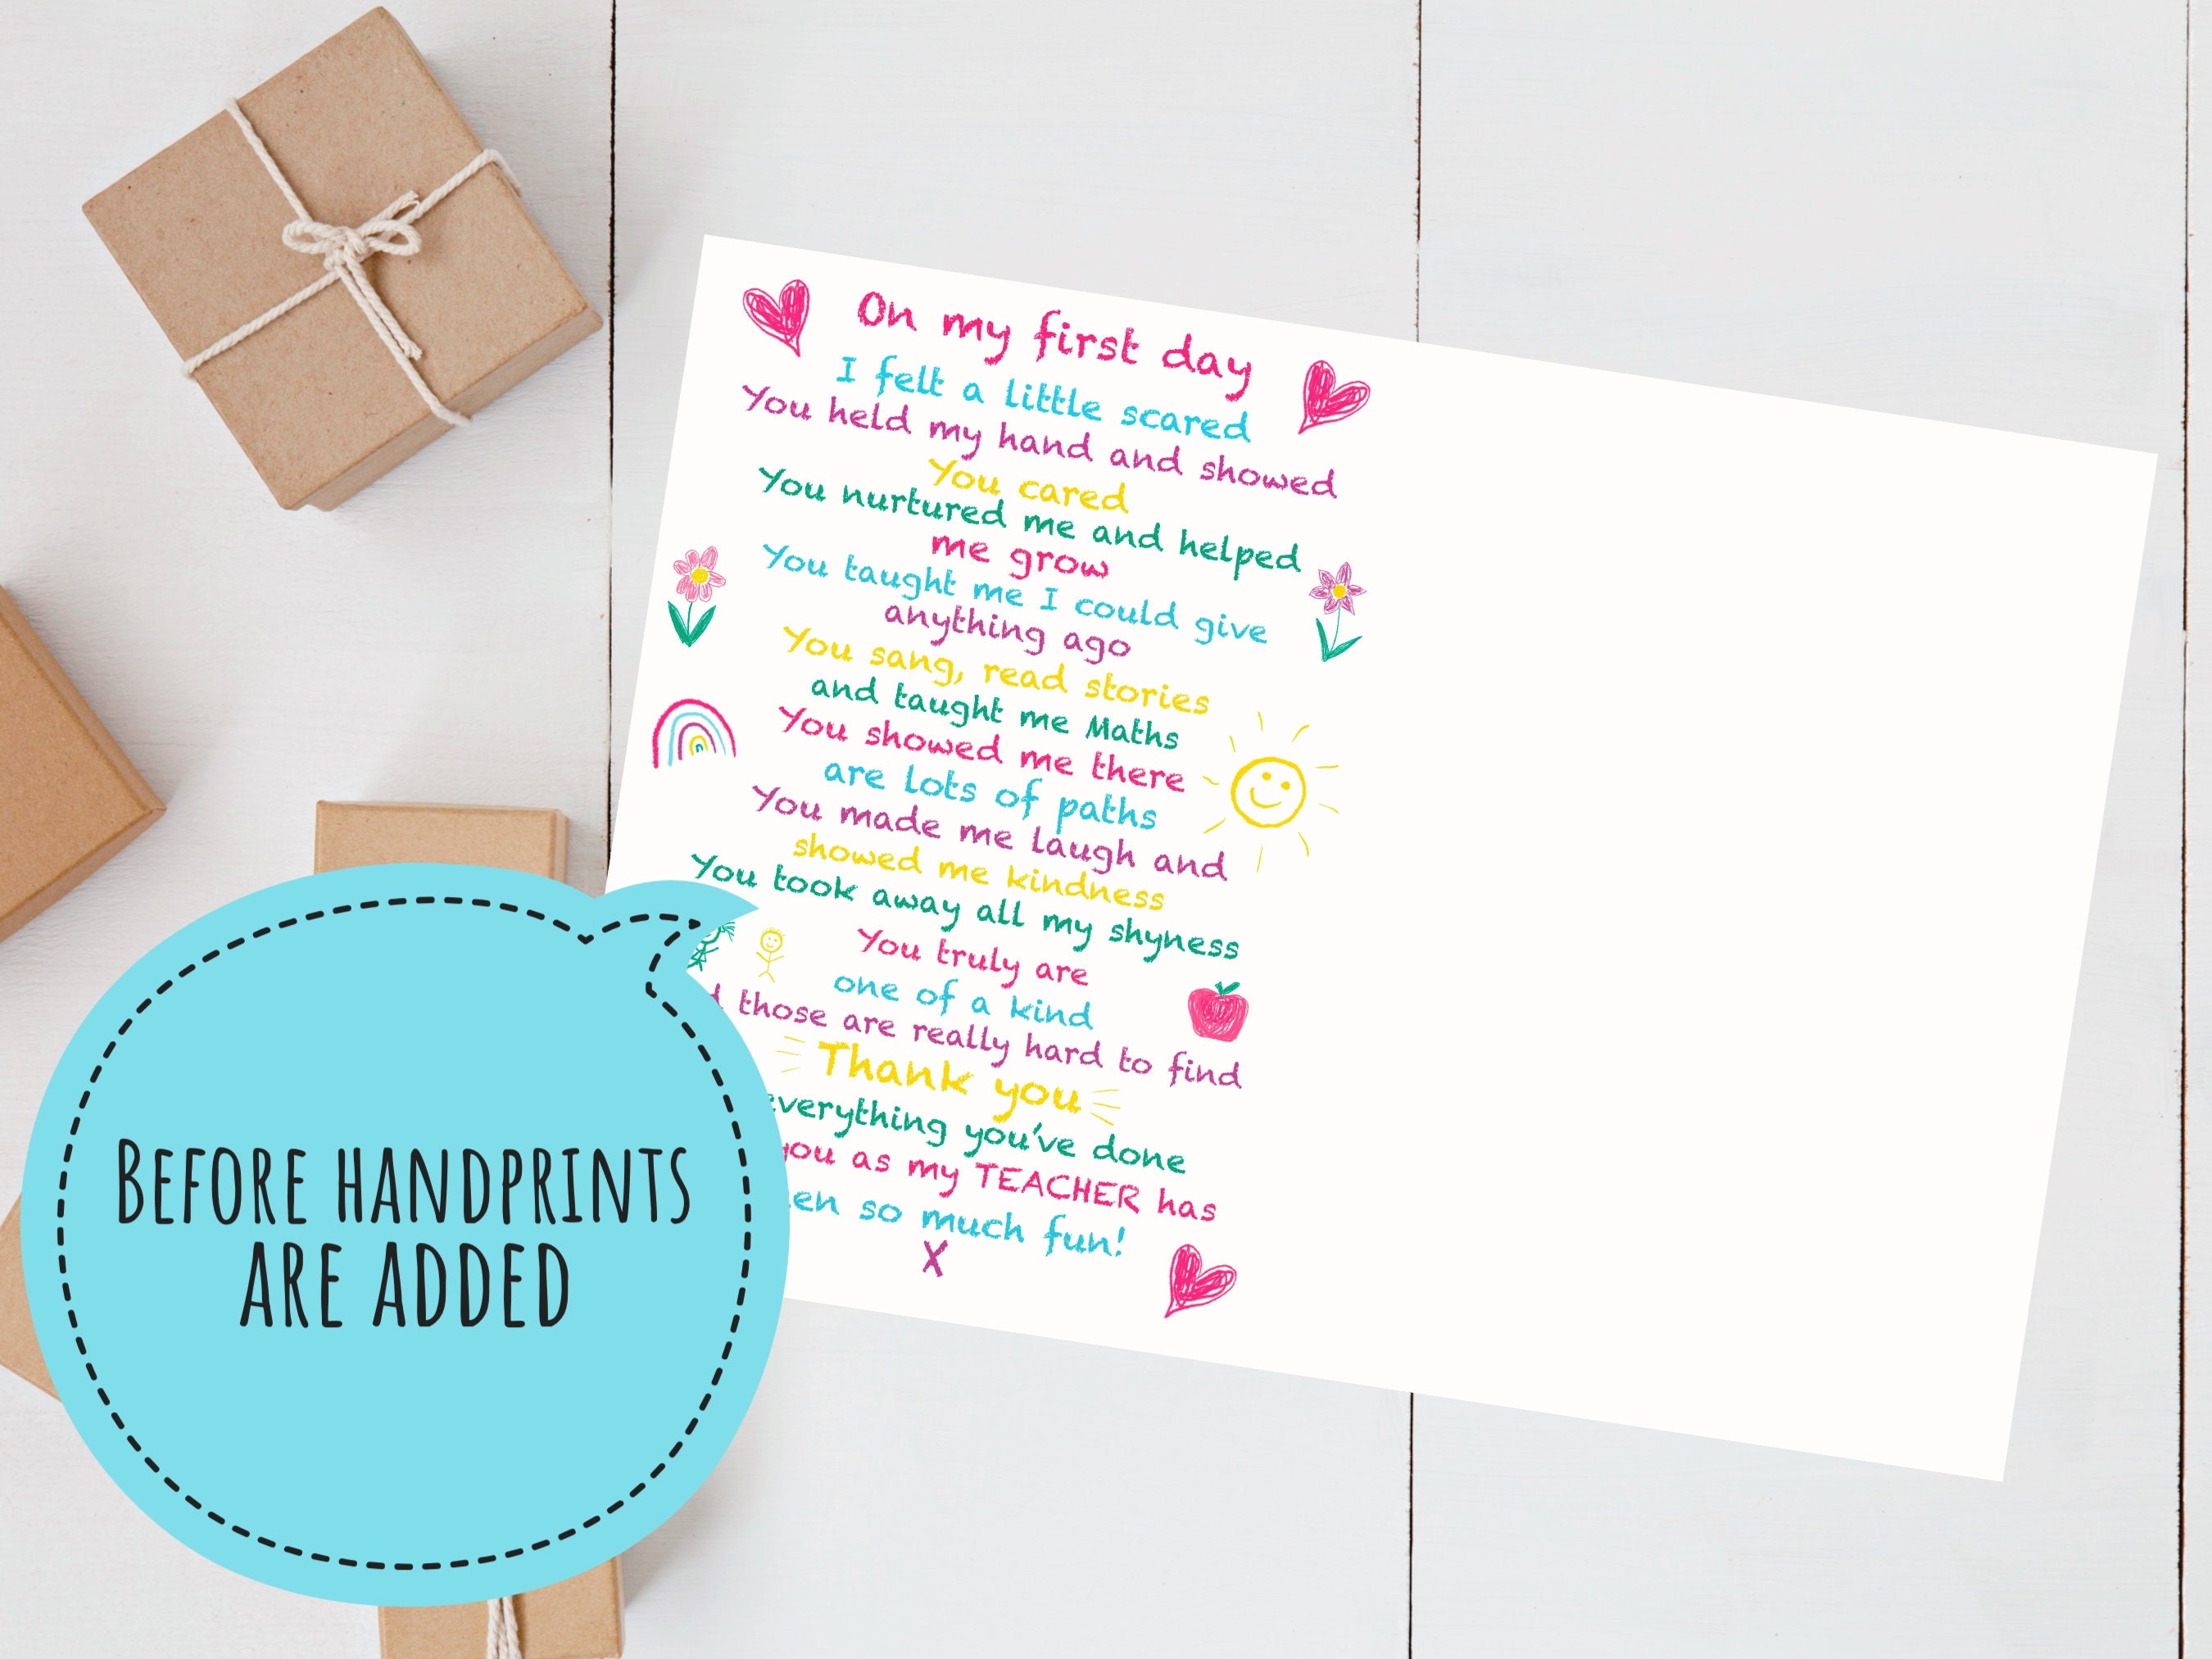 On my first day
I felt a little scared
You held my hand and showed
You cared
You nurtured me and helped
me grow
You taught me I could give
anything ago
You sang, read stories
and taught me Maths
You showed me there
are lots of paths
You made me laugh and
showed me kindness
You took away all my shyness
You truly are
one of a kind
those are really hard to find
Thank you
everything you've done
you as my TEACHER has
so much fun!
X
BEFORE HANDPRINTS
ARE ADDED